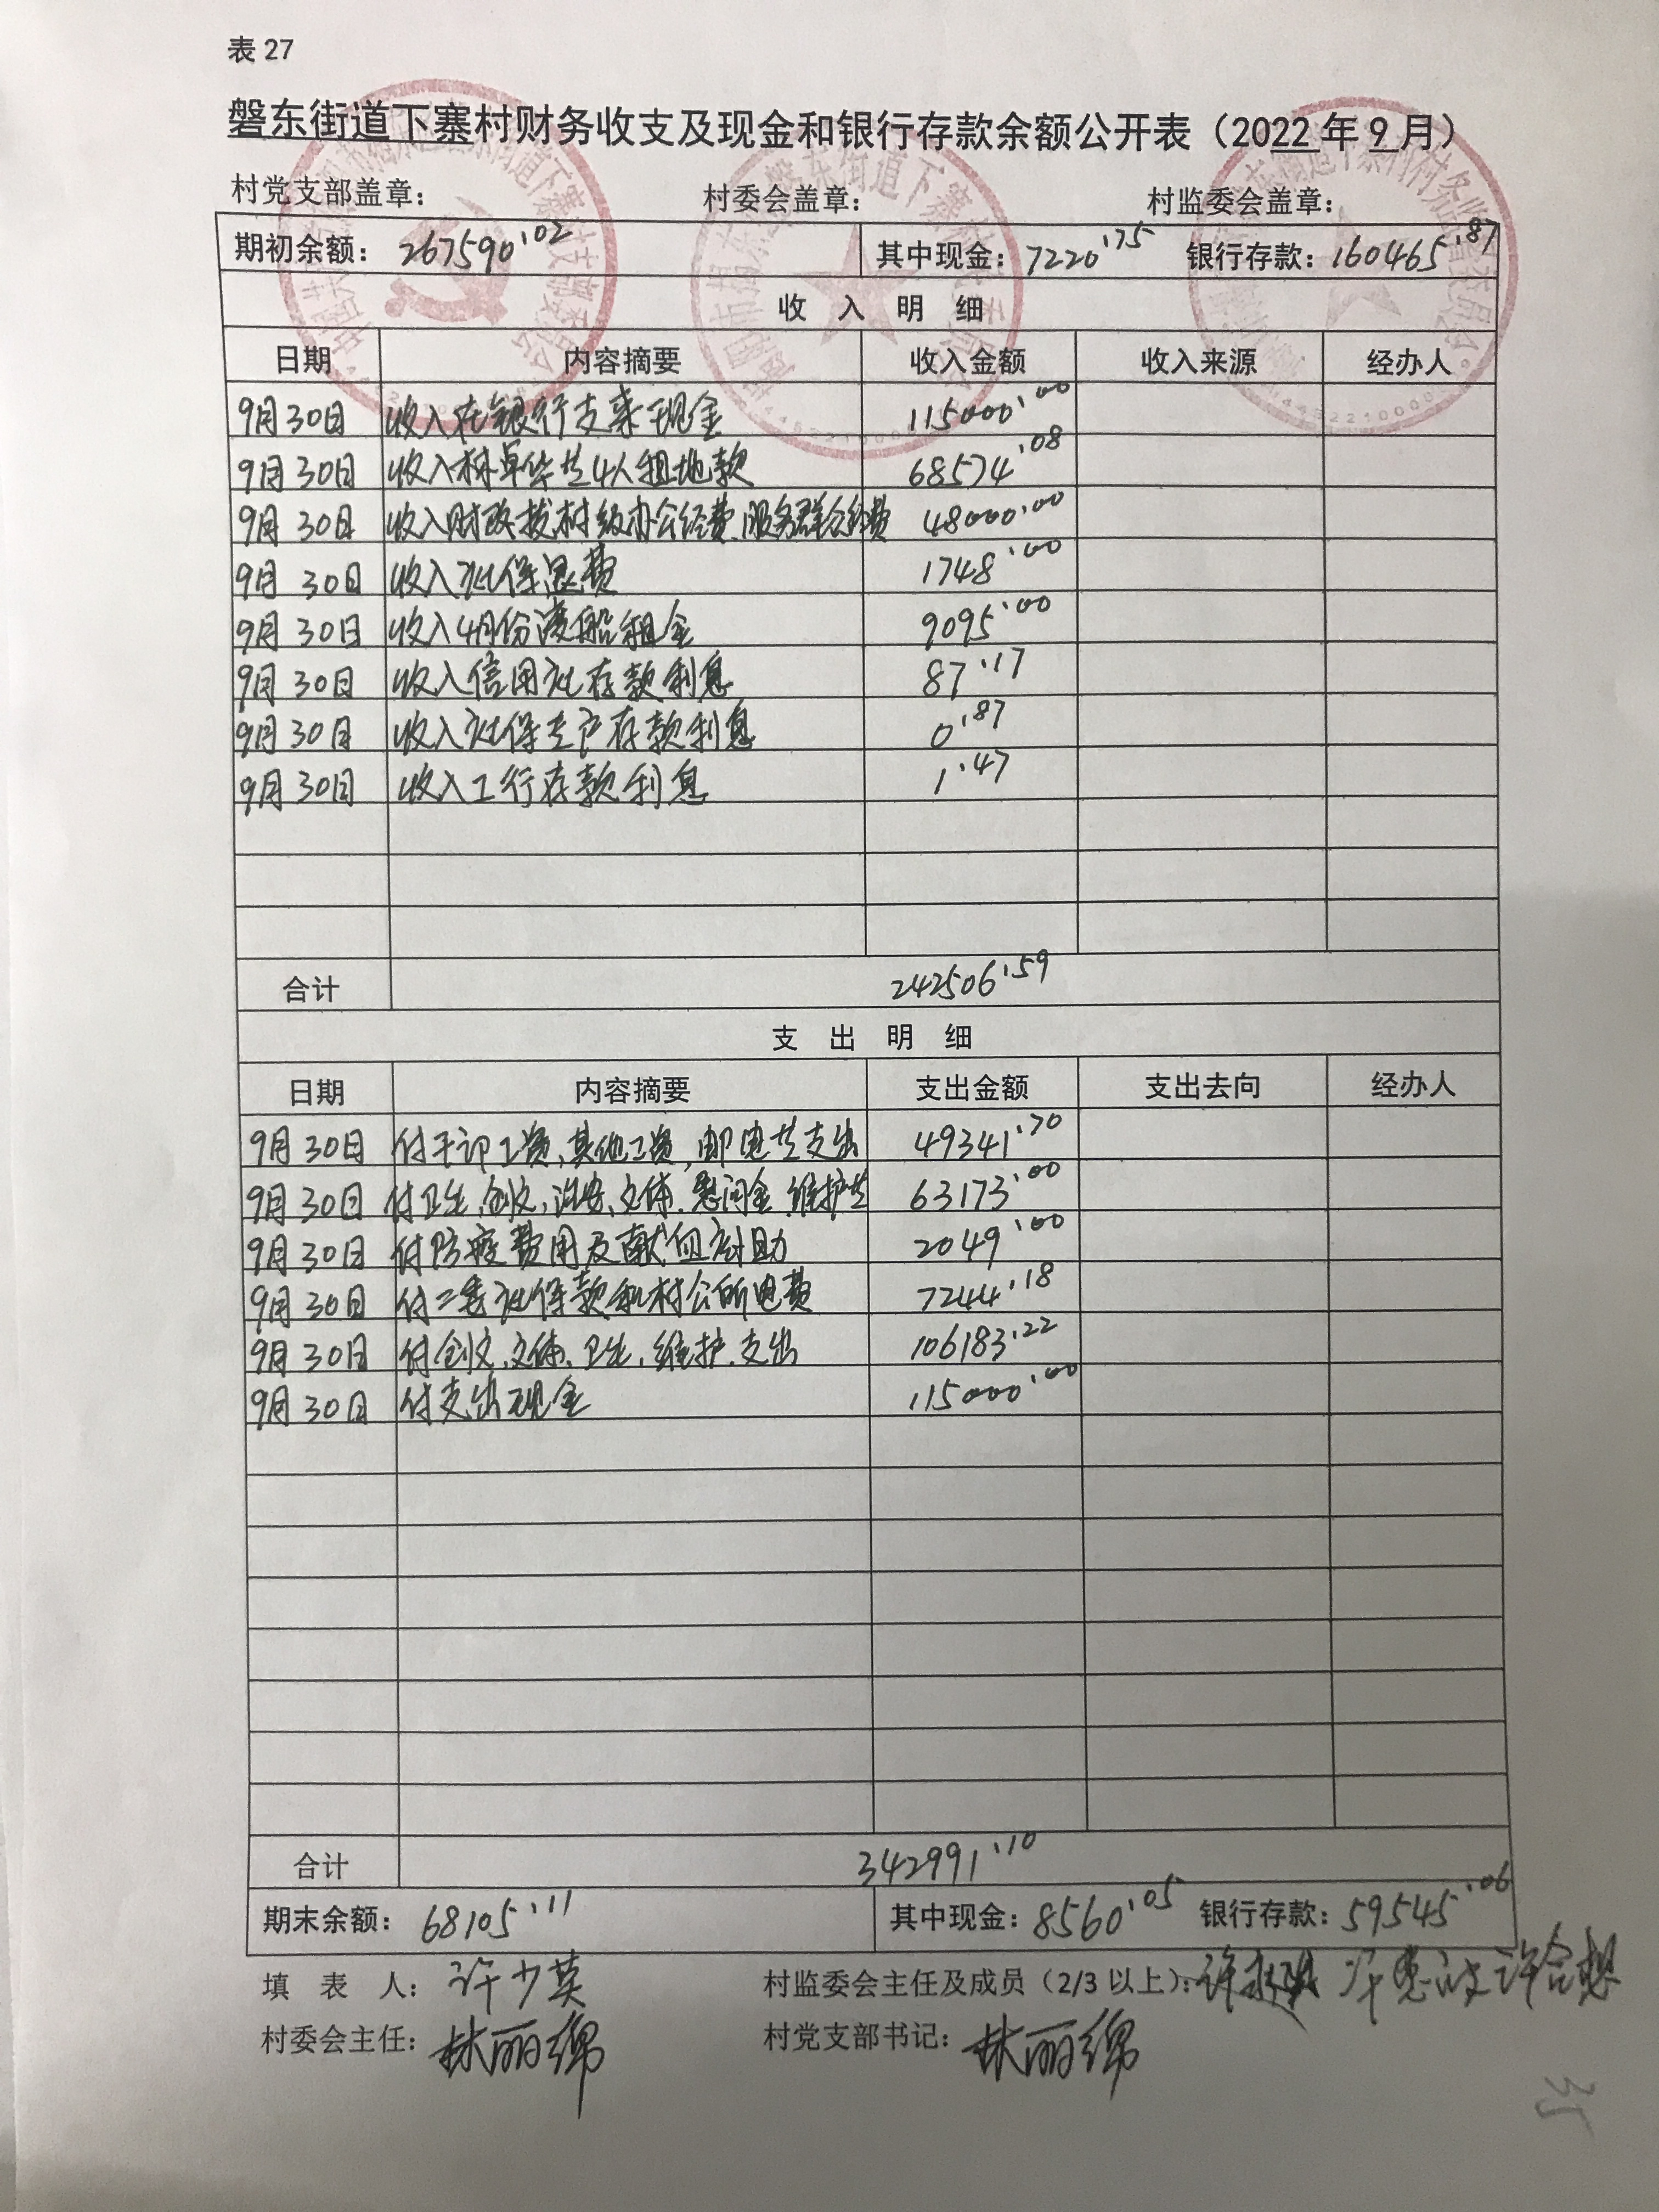 表 27
磐东街道下寨村财务收支及现金和银行存款余额公开表（2022 年 9 月）
村党支部盖章： 村委会盖章： 村监委会盖章：
期初余额： 267590.02 其中现金：7220.75 银行存款：160465.87
收 入 明 细
日期 内容摘要 收入金额 收入来源 经办人
9月30日 收入在银行支来现金 115000.00
9月30日 收入林卓华等4人租地款 68574.08
9月30日 收入财政拨村级办公经费、服务群众经费 48000.00
9月30日 收入社保退费 1748.00
9月30日 收入4月份渡船租金 9095.00
9月30日 收入信用社存款利息 87.17
9月30日 收入社保专户存款利息 0.87
9月30日 收入工行存款利息 1.47
合计 242506.59
支 出 明 细
日期 内容摘要 支出金额 支出去向 经办人
9月30日 付干部工资、其他工资、邮电等支出 49341.70
9月30日 付卫生、创文、治安、文体、慰问金、维护等 63173.00
9月30日 付防疫费用及献血补助 2049.00
9月30日 付二委社保款和村公所电费 7244.18
9月30日 付创文、文体、卫生、维护、支出 106183.22
9月30日 付支出现金 115000.00
合计 342991.10
期末余额： 68105.11 其中现金：8560.05 银行存款：59545.06
填 表 人： 许少英 村监委会主任及成员（2/3 以上）：许
村委会主任： 林丽绵 村党支部书记： 林丽绵
35